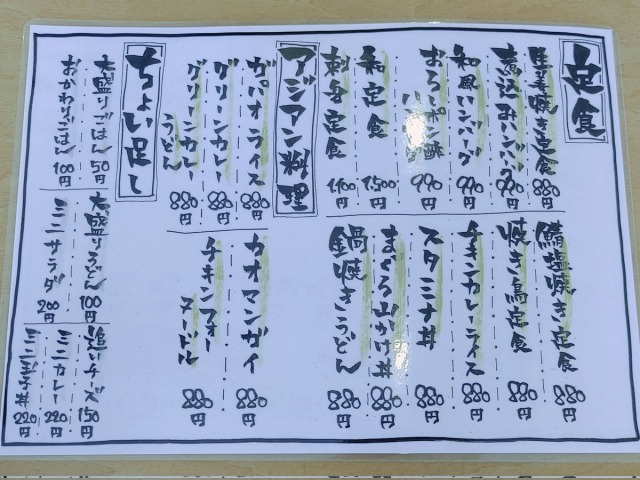 定食
生姜焼き定食 880円
煮込みハンバーグ 990円
和風ハンバーグ 990円
おろしポン酢ハンバーグ 990円
和定食 1,500円
刺身定食 1,100円
鯖塩焼き定食 880円
焼き鳥定食 880円
チキンカレーライス 880円
スタミナ丼 880円
まぐろ山かけ丼 880円
鍋焼きうどん 880円
アジアン料理
ガパオライス 880円
グリーンカレー 880円
グリーンカレーうどん 880円
カオマンガイ 880円
チキンフォーヌードル 880円
ちょい足し
大盛りごはん 50円
おかわりごはん 100円
大盛りうどん 100円
ミニサラダ 200円
追いチーズ 150円
ミニカレー 220円
ミニ玉子丼 220円